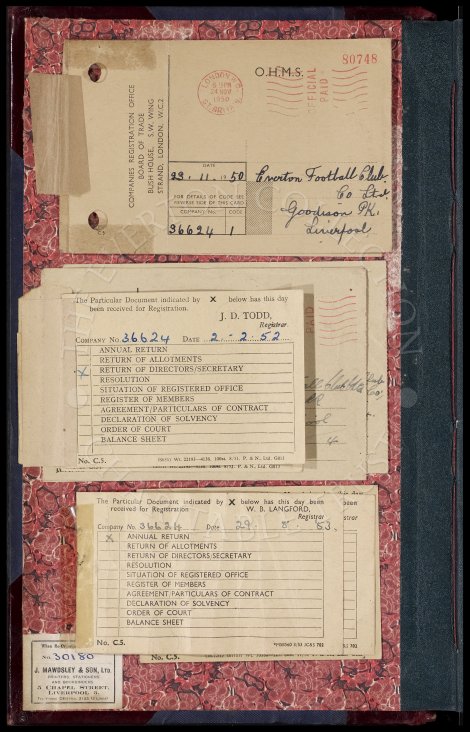 COMPANIES REGISTRATION OFFICE
BOARD OF TRADE
BUSH HOUSE, S.W. WING
STRAND, LONDON, W.C.2
C 5
O.H.M.S.
80748
LONDON
24 NOV
1950
OFFICIAL
PAID
DATE
23.11.1950
FOR DETAILS OF CODE SEE
REVERSE SIDE OF THIS CARD
COMPANY No. CODE
36624 1
Everton Football Club
Co Ltd.
Goodison Pk.
Liverpool
The Particular Document indicated by X below has this day
been received for Registration.
J. D. TODD,
Registrar.
COMPANY No. 36624 DATE 2-2.52
ANNUAL RETURN
RETURN OF ALLOTMENTS
X RETURN OF DIRECTORS/SECRETARY
RESOLUTION
SITUATION OF REGISTERED OFFICE
REGISTER OF MEMBERS
AGREEMENT/PARTICULARS OF CONTRACT
DECLARATION OF SOLVENCY
ORDER OF COURT
BALANCE SHEET
No. C.5.
PAID
The Particular Document indicated by X below has this day been
received for Registration
W. B. LANGFORD,
Registrar
Company No. 36624 Date 29. 8. 53.
X ANNUAL RETURN
RETURN OF ALLOTMENTS
RETURN OF DIRECTORS/SECRETARY
RESOLUTION
SITUATION OF REGISTERED OFFICE
REGISTER OF MEMBERS
AGREEMENT/PARTICULARS OF CONTRACT
DECLARATION OF SOLVENCY
ORDER OF COURT
BALANCE SHEET
No. C.5.
No. 30180
J. MAWDSLEY & SON, LTD.
PRINTERS, STATIONERS
AND BOOKBINDERS
5 CHAPEL STREET,
LIVERPOOL 3.